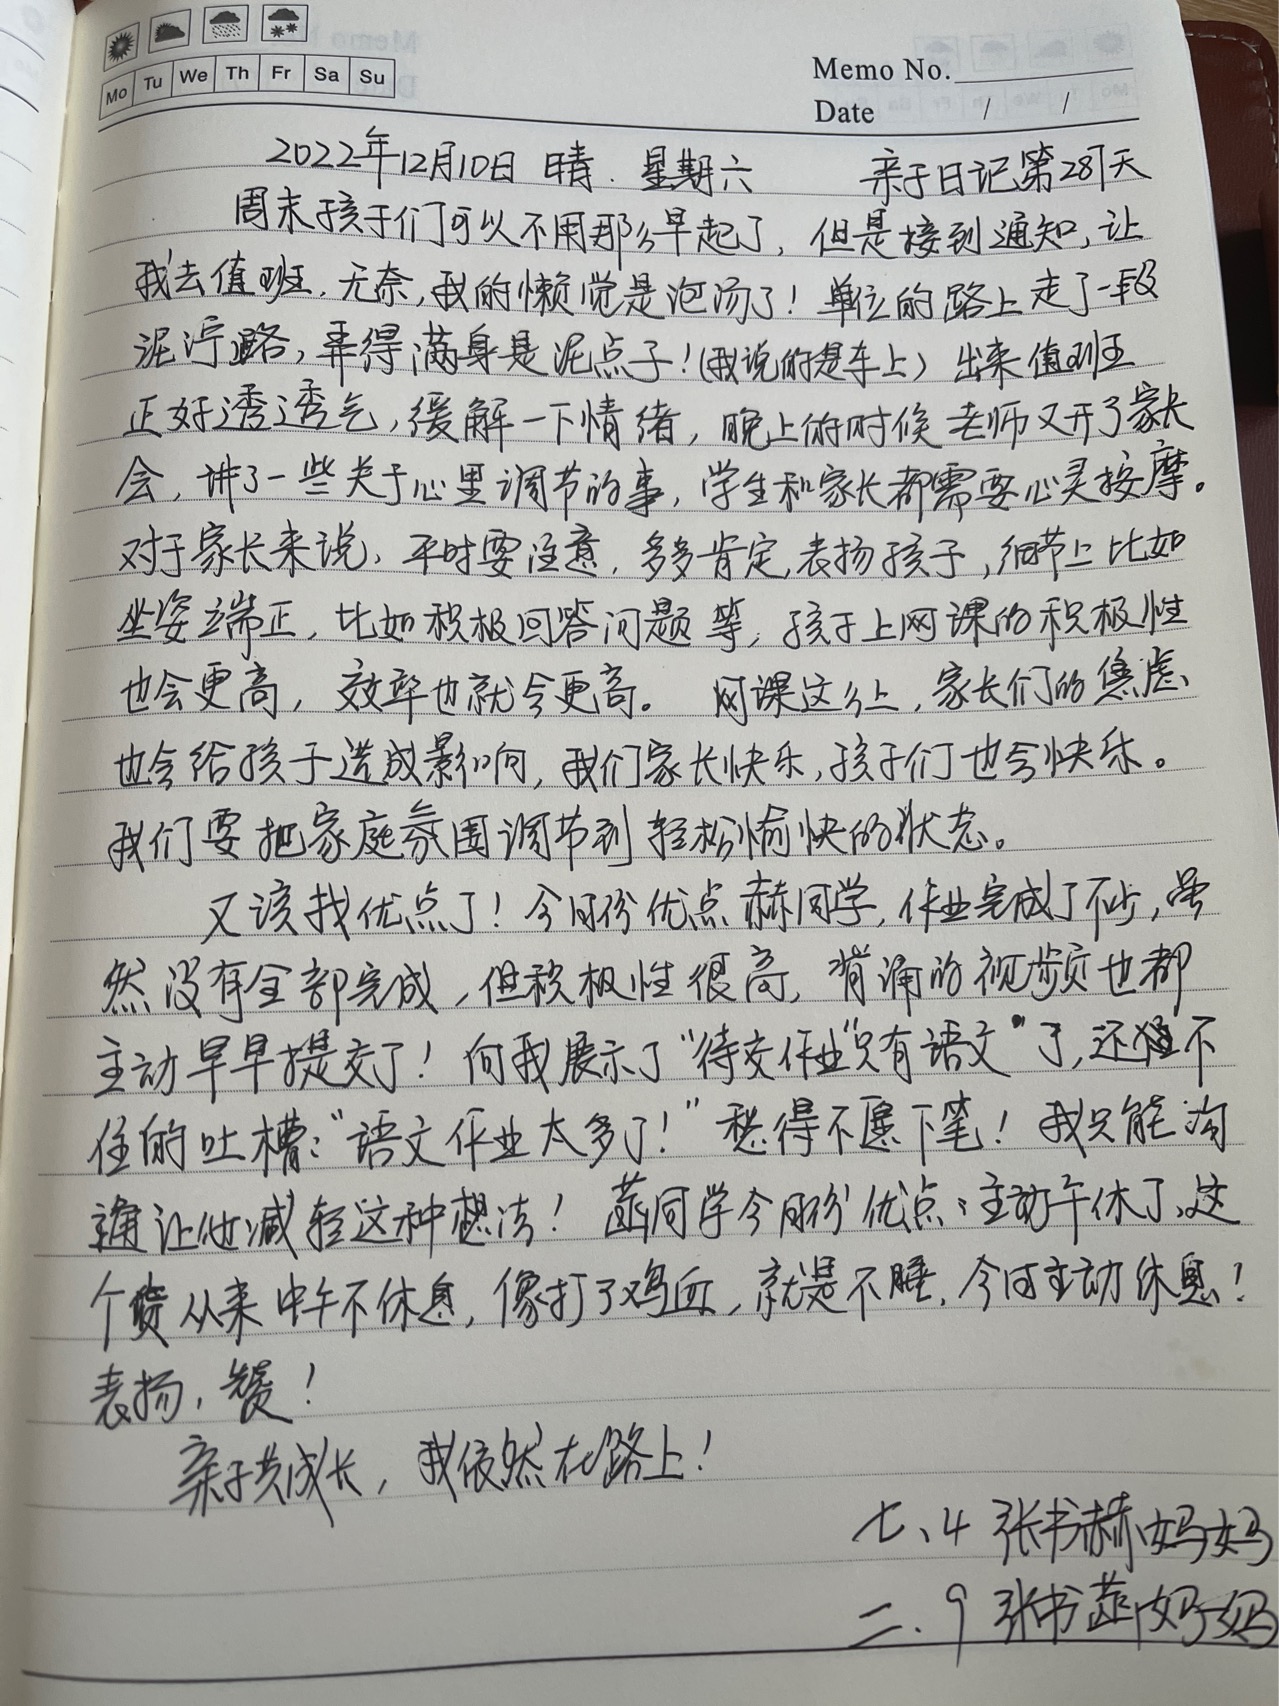 Mo Tu We Th Fr Sa Su
Memo No.
Date / /
2022年12月10日 晴. 星期六 亲子日记第287天
周末孩子们可以不用那么早起了，但是接到通知，让
我去值班，无奈，我的懒觉是泡汤了！单位的路上走了一段
泥泞路，弄得满身是泥点子！(我说的是车上）出来值班
正好透透气，缓解一下情绪，晚上的时候老师又开了家长
会，讲了一些关于心里调节的事，学生和家长都需要心灵按摩。
对于家长来说，平时要注意，多多肯定，表扬孩子，细节上比如
坐姿端正，比如积极回答问题等，孩子上网课的积极性
也会更高，效率也就会更高。 网课这么上，家长们的焦虑
也会给孩子造成影响，我们家长快乐，孩子们也会快乐。
我们要把家庭氛围调节到轻松愉快的状态。
又该找优点了！今日份优点赫同学，作业完成了不少，虽
然没有全部完成，但积极性很高，背诵的视频也都
主动早早提交了！向我展示了“待交作业“只有语文”了，还不
住的吐槽：“语文作业太多了！”愁得不愿下笔！我只能沟
通让他减轻这种想法！蕌同学今日份优点：主动午休了，这
个货从来中午不休息，像打了鸡血，就是不睡，今日主动休息！
表扬，赞！
亲子共成长，我依然在路上！
七、4 张书赫妈妈
二、9 张书妈妈